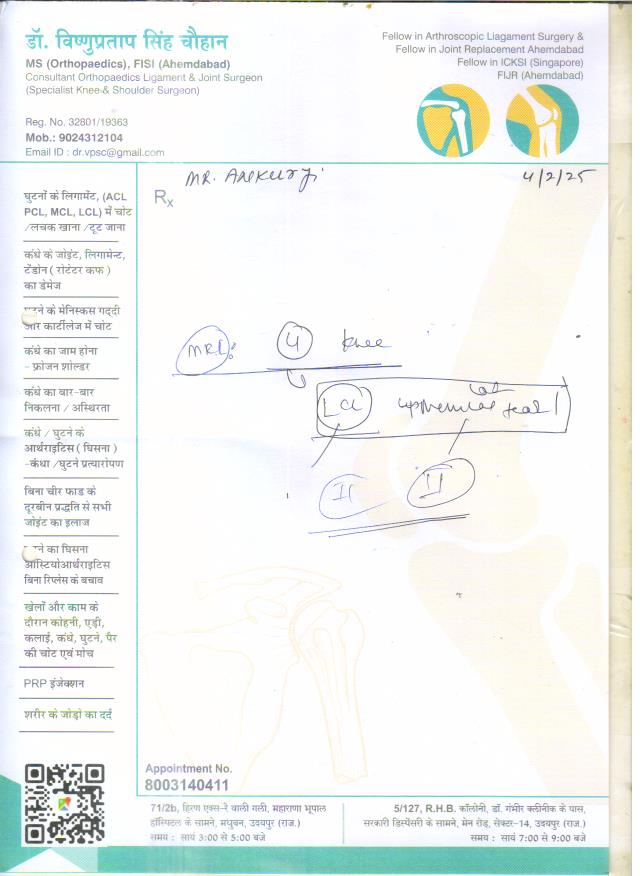 डॉ. विष्णुप्रताप सिंह चौहान
MS (Orthopaedics), FISI (Ahemdabad)
Consultant Orthopaedics Ligament & Joint Surgeon
(Specialist Knee & Shoulder Surgeon)
Reg. No. 32801/19363
Mob.: 9024312104
Email ID : dr.vpsc@gmail.com
Fellow in Arthroscopic Liagament Surgery &
Fellow in Joint Replacement Ahemdabad
Fellow in ICKSI (Singapore)
FIJR (Ahemdabad)
MR.
4/2/25
Rx
घुटनों के लिगामेंट, (ACL
PCL, MCL, LCL) में चोट
/लचक खाना /टूट जाना
कंधे के जोइंट, लिगामेन्ट,
टेंडोन ( रोटेटर कफ )
का डेमेज
के मेनिस्कस गद्दी
और कार्टीलेज में चोट
कंधे का जाम होना
- फ्रोजन शोल्डर
कंधे का बार-बार
निकलना / अस्थिरता
कंधे / घुटने के
आर्थराइटिस ( घिसना )
-कंधा /घुटने प्रत्यारोपण
बिना चीर फाड के
दूरबीन प्रद्धति से सभी
जोइंट का इलाज
का घिसना
ऑस्टियोआर्थराइटिस
बिना रिप्लेस के बचाव
खेलों और काम के
दौरान कोहनी, एड़ी,
कलाई, कंधे, घुटने, पैर
की चोट एवं मोच
PRP इंजेक्शन
शरीर के जोड़ो का दर्द
MRI: knee
LCL tear
II II
Appointment No.
8003140411
71/2b, हिरण एक्स-रे वाली गली, महाराणा भूपाल
हॉस्पिटल के सामने, मधुबन, उदयपुर (राज.)
समय : सायं 3:00 से 5:00 बजे
5/127, R.H.B. कॉलोनी, डॉ. गंभीर क्लीनीक के पास,
सरकारी डिस्पेंसरी के सामने, मेन रोड़, सेक्टर-14, उदयपुर (राज.)
समय : सायं 7:00 से 9:00 बजे